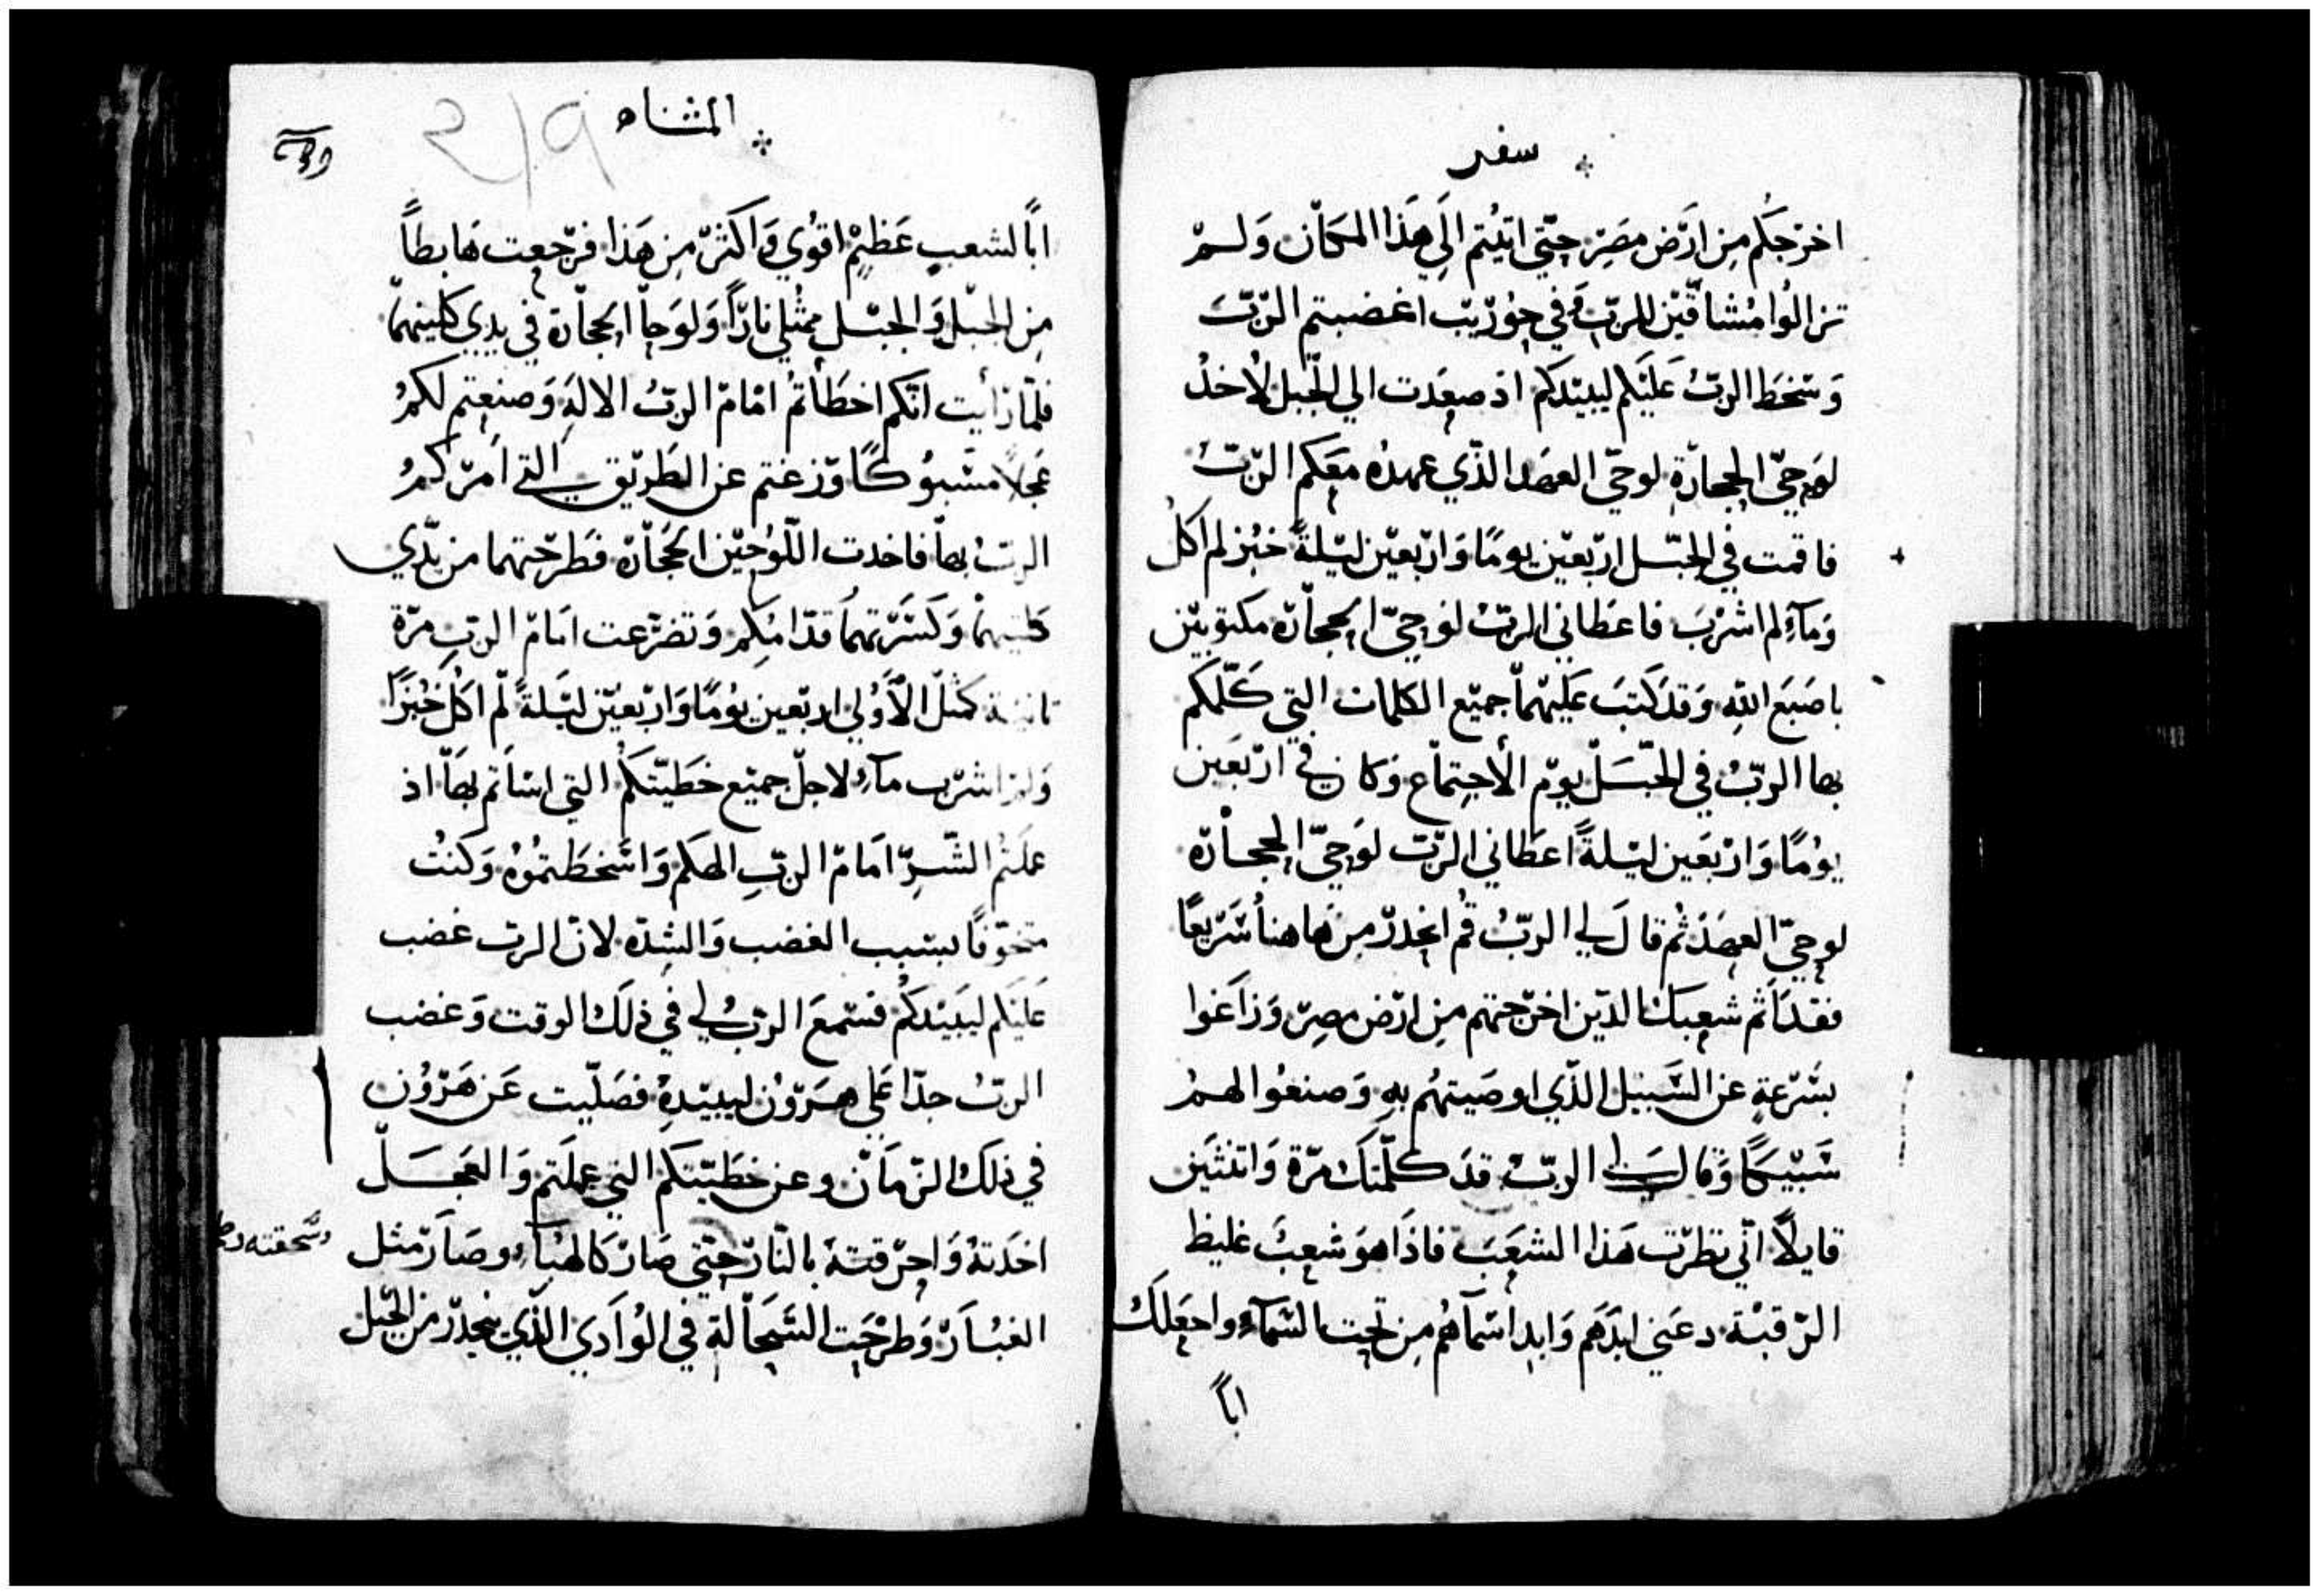 سفر
اخرَجَكُم مِن ارَض مصَر حتّي اتيُتم الَي هَذا المكان وَلم
تزالوُا مُشاقّيْن للربّ وَفي حوُرْيب اغضبتم الربّ
وَسَخَط الربُّ عَليَكم ليبيْدكم اذ صعَدت الي الجّبل لأخذُ
لوَحيّ الحجارَة لوحيّ العهدَ الذّي عهدُه معَكم الربّ
فاقمت في الجبّل ارَبعيْن يومًا وَارْبعيْن ليْلةً خبُز لم اكلُ
وَمآءِ لم اشرْبَ فاعَطاني الربّ لوَحيّ الحجاَرة مكتوبيْن
باصَبعَ اللهِ وَقدَ كتبَ عَليهماْ جميْع الكلمات التي كَلّمكم
بها الربُّ في الجّبَل يومّ الأجتماْع وَكان في ارَبعَين
يومًا وَارْبعَين ليْلةً اعطَاني الربّ لوَحيّ الحجاْرة
لوحيّ العهدَ ثم قالَ لي الربُّ قُم انحدرْ من هَاهناُ سَرْيعًا
فقد اَثم شعبكَ الذيْن اخرْجتهم مِن ارْض مصِر وَزاغَوا
بسُرْعةٍ عن السَبيْل الذّي اوصَيتهُم بهِ وَصنعُوا لهمُ
سَبيْكًا وَقال لي الربُّ قدَ كلّمتك مرّة وَاتنثيَن
قايلاً انّي نظرْت هَذا الشعَبَ فاذَا هوَ شعبَ غليظ
الرّقبْة دعَني ابدَهم وَابد اسَمآهُم مِن تحت السَمآءِ واجعَلكَ
اباً
المثناه
اباً لشعبٍ عَظيْم اقوُي وَاكثرّ مِن هَذا فرَجعت هَابطاً
مِن الجبْل وَالجبّل ممثْلي نارًا وَلوَحاّ الحجاْرة في يديي كلتيهماّ
فلمّا رَأيت انّكم اخطَأتمُ امَامّ الربُّ الالهَ وَصنعتم لكمُ
عجلاً مسَبوُكًا وَزغتم عن الطَريْق التي اَمرّكمُ
الربُّ بهاّ فاخدت اللوُحيْن الحجاْرة فطَرحْتهما من يدّي
كلتيهماْ وَكسَرّتهماُ قدّامكم وَتضرّعت امَامّ الربّ مرّة
تانية كمثلّ الأوَلي ارَبعين يوُمًا وَارْبعيْن ليَلةً لّم اكلُ خُبزًا
وَلم اشرْب مآءِ لاجلّ جميْع خَطيّتكمُ التي اسَأتم بهَاّ اذ
عملَتمُ الشّرِّ امَامّ الربّ الهكم وَاسَخطَتمُوهُ وَكنتُ
متخوّفًا بسَبب الغضب وَالشِدّة لانّ الربّ غضب
عَليَكم ليبَيْدكُم فسَمعَ الربُّ لي في ذلَك الوقت وَغضب
الربُّ جدّا عَلي هرَوْن ليبيْدهُ فصَليّت عَن هَرْوُن
في ذلَك الزّمَانّ وعن خطَيّتكم التي عملَتم وَالعجَلّ
اخَدتهُ وَاحرْقتهُ بالناّر حتّي صَارّ كالهبْآءِ وصَارّ مثل
وسَحقته
الغبُارّ وَطرْحَت السَحَاْلة في الوُادَي الذّي ينحدرّ من الجّبل